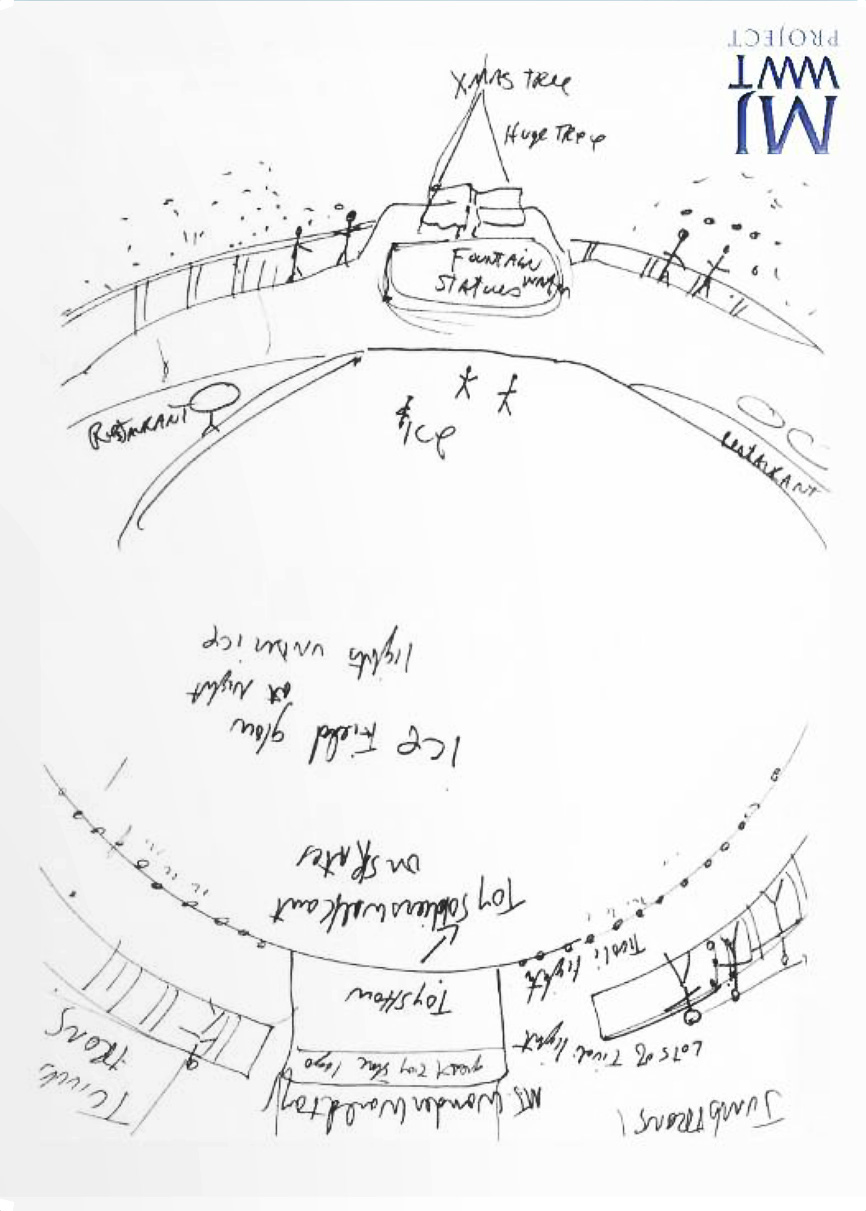 XMAS TREE
Huge Tree
FOUNTAIN
STATUES WATER
RESTAURANT
RESTAURANT
ICE
lights under ice
at night
ICE Field glow
on skates
Toy Soldiers walk out
Tivoli light
Toy show
Lots of Tivoli light
great toy store logo
Wonder World toy
TRONS
Jumbotrons
MJ
WWT
PROJECT